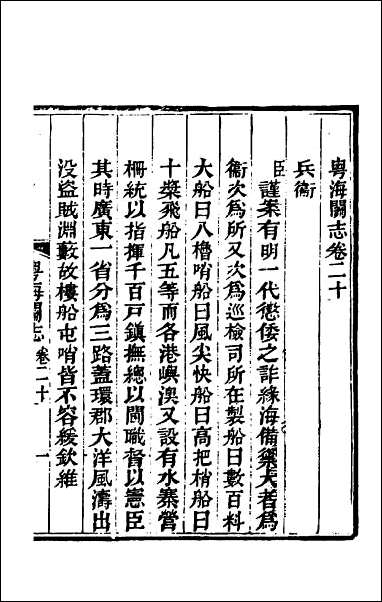 粤海關志卷二十
兵衛
臣謹案有明一代懲倭之詐緣海備禦大者爲
衞次爲所又次爲巡檢司所在製船曰數百料
大船曰八櫓哨船曰風尖快船曰高把梢船曰
十槳飛船凡五等而各港嶼澳又設有水寨營
柵統以指揮千百戸鎮撫總以閫職督以憲臣
其時廣東一省分爲三路蓋環郡大洋風濤出
没盜賊淵藪故樓船屯哨皆不容緩欽維
粤海關志 卷二十 一